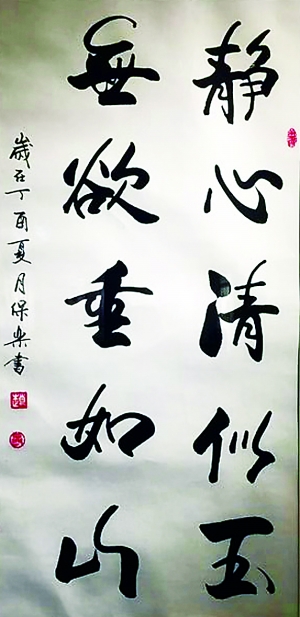 静心清似玉
無欲重如山
歲在丁酉夏月保樂書
趙